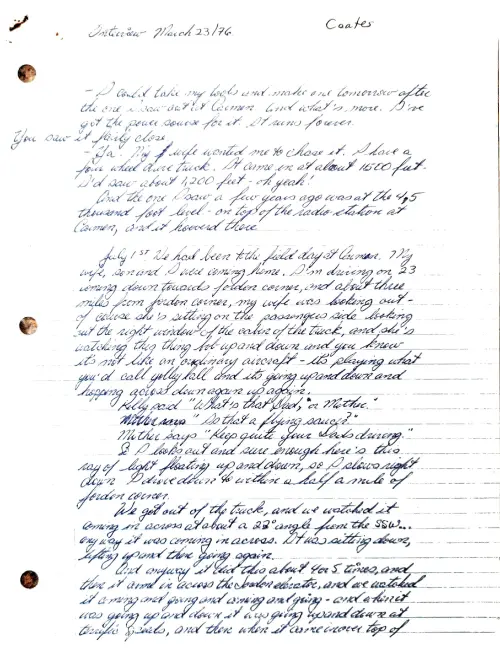 Interview March 23/76 Coates
- I could take my tools and make one tomorrow after
the one I saw out at Carmen. And what's more, I've
got the power source for it. It runs forever.
You saw it fairly close
- Ya. My wife wanted me to chase it. I have a
four wheel drive truck. It came in at about 1500 feet.
I'd say about 1,200 feet - oh yeah!
And the one I saw a few years ago was at the 4,5
thousand foot level - on top of the radio station at
Carmen, and it hovered there.
July 1st We had been to the field day at Carman. My
wife, son and I were coming home. I'm driving on 23
coming down towards Jordan corner, and about three
miles from Jordan corner, my wife was looking out -
of course she's sitting on the passengers side looking
out the right window of the cabin of the truck, and she's
watching this thing bob up and down and you know
its not like an ordinary aircraft - its playing what
you'd call yolly ball and its going up and down and
hopping across down again up again.
Kelly said "What's that Dad," or Mother."
"Is that a flying saucer?"
Mother says "Keep quite your Dads driving."
& I looks out and sure enough here's this
ray of light floating up and down, so I slows right
down. I drive down to within a half a mile of
Jordan corner.
We got out of the truck, and we watched it
coming in across at about a 22° angle from the SSW...
anyway it was coming in across. It was setting down,
lifting up and then going again.
And anyway it did this about 4 or 5 times, and
then it came in across the Jordan elevator, and we watched
it coming and going and coming and going - and when it
was going up and down it was going up and down at
terrific speeds, and then when it came in over top of